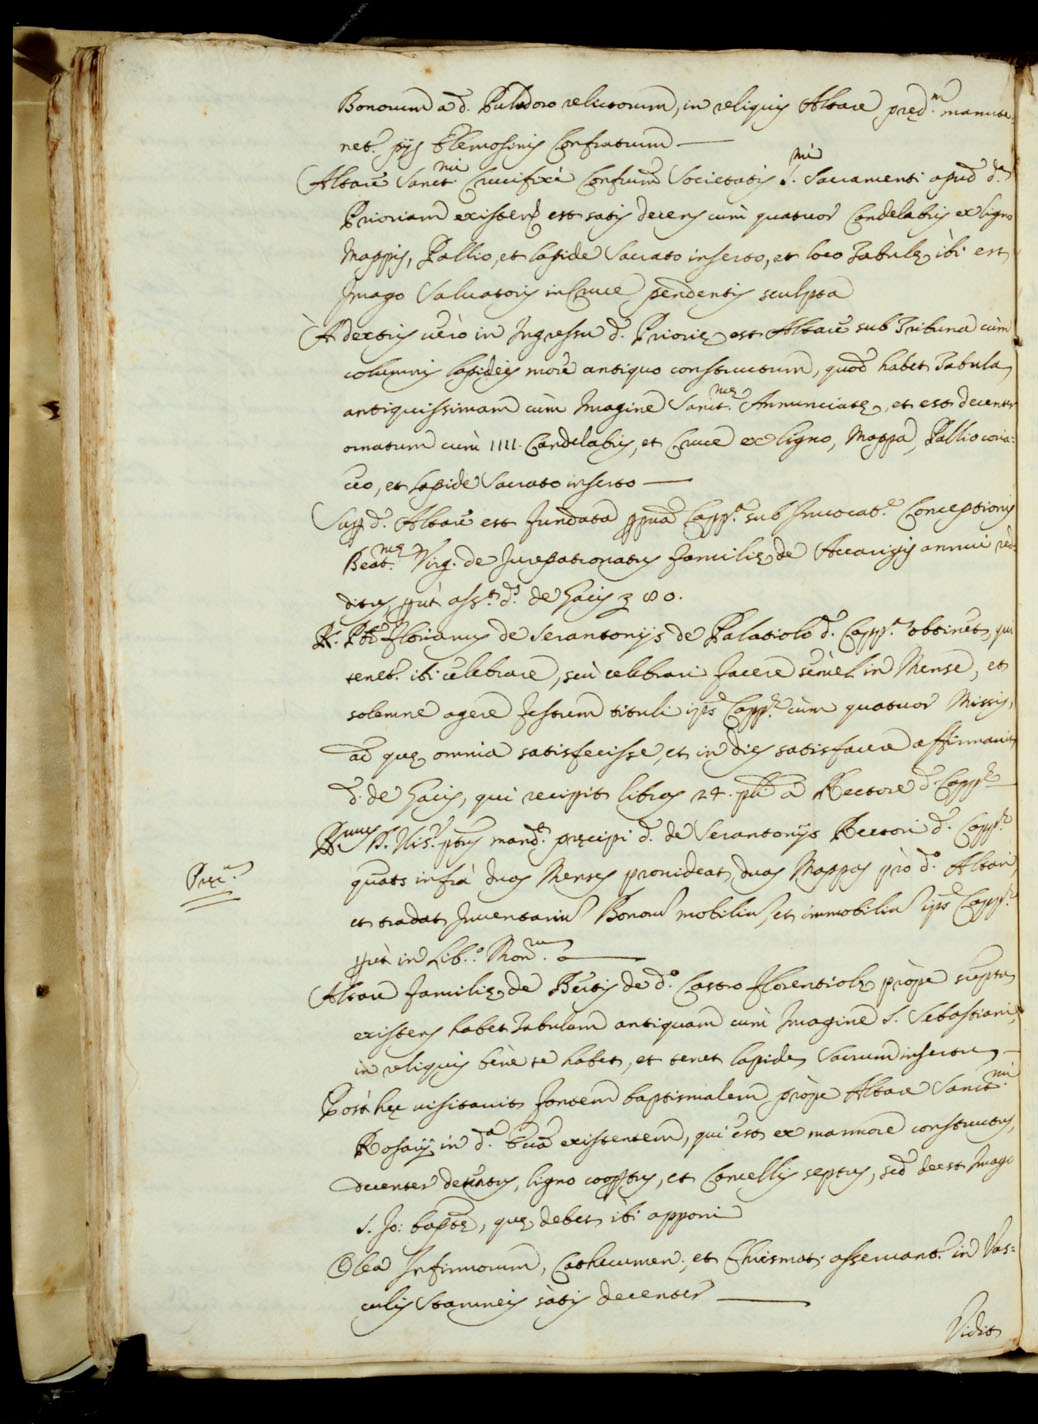 Bonorum a d. Pulidoro relictorum, in reliquis Altare pręd.m manute-
net.r pijs Elemosinis Confratrum —
Altare Sanct.mi Crucifixi Confrum Societatis S.mi Sacramenti apud d.m
Prioriam existens est satis decens cum quatuor Candelabris ex ligno
Mappis, Pallio, et lapide Sacrato inserto, et loco Tabulę ibi est
Imago Salvatoris in Cruce pendentis sculpta
A dextris verò in Ingressu d. Priorię est Altare sub Tribuna cum
columnis lapideis more antiquo constructum, quod habet Tabulam
antiquissimam cum Imagine Sanct.mę Annunciatę, et est decenter
ornatum cum IIII. Candelabris, et Cruce ex ligno, Mappa, Pallio coria-
ceo, et lapide Sacrato inserto —
Sup. d. Altare est fundata Capp.a sub Invocat.e Conceptionis
Beat.mę Virg. de Jurepatronatus familię de annui red-
ditus, put ass.t d.s de Gacis 80.
R. Pbr Florianus de Serantonijs de Palatiolo d. Capp.m obtinet, qui
tenet.r ibi celebrare, seu celebrari facere semel in Mense, et
solemne agere festum tituli ips Capp.ę cum quatuor Missis,
ad quę omnia satisfecisse, et in dies satisfacere affirmavit
d. de Gacis, qui recipit libras 24. a Rectore d. Capp.ę
P. Vis. mand.t pręcipi d. de Serantonijs Rectori d. Capp.ę
Pręc.m
quats infrà duos Menses provideat duas Mappas pro d.o Altari,
et tradat Inventariu Bonoru mobiliu, et immobiliu ips Capp.ę
put in Lib.o Mon.
Altare familię de Bertis de d.o Castro Florentiolę prope
existens habet Tabulam antiquam cum Imagine S. Sebastiani,
in reliquis bene se habet, et tenet lapidem Sacrum insertum —
Post hęc visitavit fontem baptismalem prope Altare Sanct.mi
Rosarij in d.a Ecca existentem, qui est ex marmore constructus,
decenter detentus, ligno cooptus, et Cancellis septus, sed deest Imago
S. Jo: baptę, quę debet ibi apponi
Olea Infirmorum, Cathecumen., et Chrismat. asservant.r in Vas-
culis Stanneis satis decenter —
Vidit